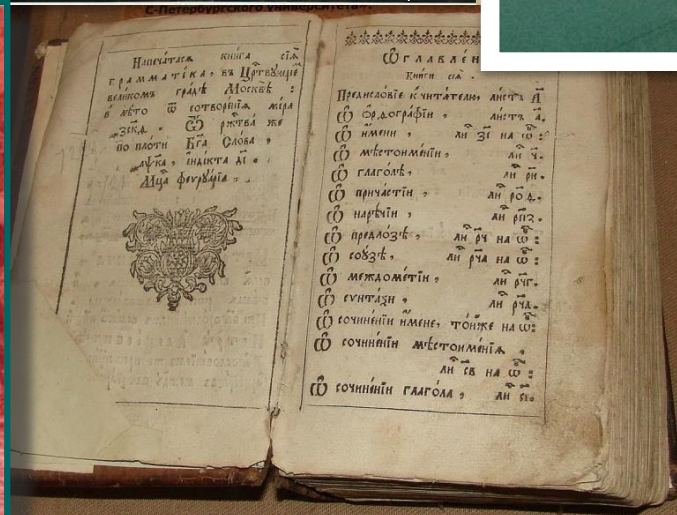 С-Петербургского университета
Напеча́тасѧ книга сїѧ̀
грамматіка, въ Црⷭ҇твꙋющеⷨ
великомъ гра́дѣ Москвѣ̀ :
в лѣто ѿ сотворе́нїѧ мі́ра
Ѿ ржⷭ҇тва же
по плоти Бг҃а Сло́ва ,
индікта
Мцⷭ҇а феврꙋа́рїа
Ѡглавле́н
Кни́ги сїѧ̀ .
Предисло́вїе к̾ чита́телю, листъ
Ѽ ѻрѳогра́фїи , листъ а҃.
Ѽ и҆́мени , ли зі҃ на ѡ҃ :
Ѽ мѣстоиме́нїи , ли ч҃.
Ѽ глаго́лѣ , ли ри҃.
Ѽ прича́стїи , ли род҃.
Ѽ нарѣ́чїи , ли рпз҃.
Ѽ предло́зѣ , ли рч҃ на ѡ҃ :
Ѽ сою́зѣ , ли рча҃ на ѡ҃ :
Ѽ междоме́тїи , ли рчг҃.
Ѽ сѵнта́ѯи , ли рчд҃.
Ѽ сочине́нїи и҆́мене, то́йже на ѡ҃ :
Ѽ сочине́нїи мѣстоиме́нїѧ ,
ли св҃ на ѡ҃ :
Ѽ сочине́нїи глаго́ла , ли